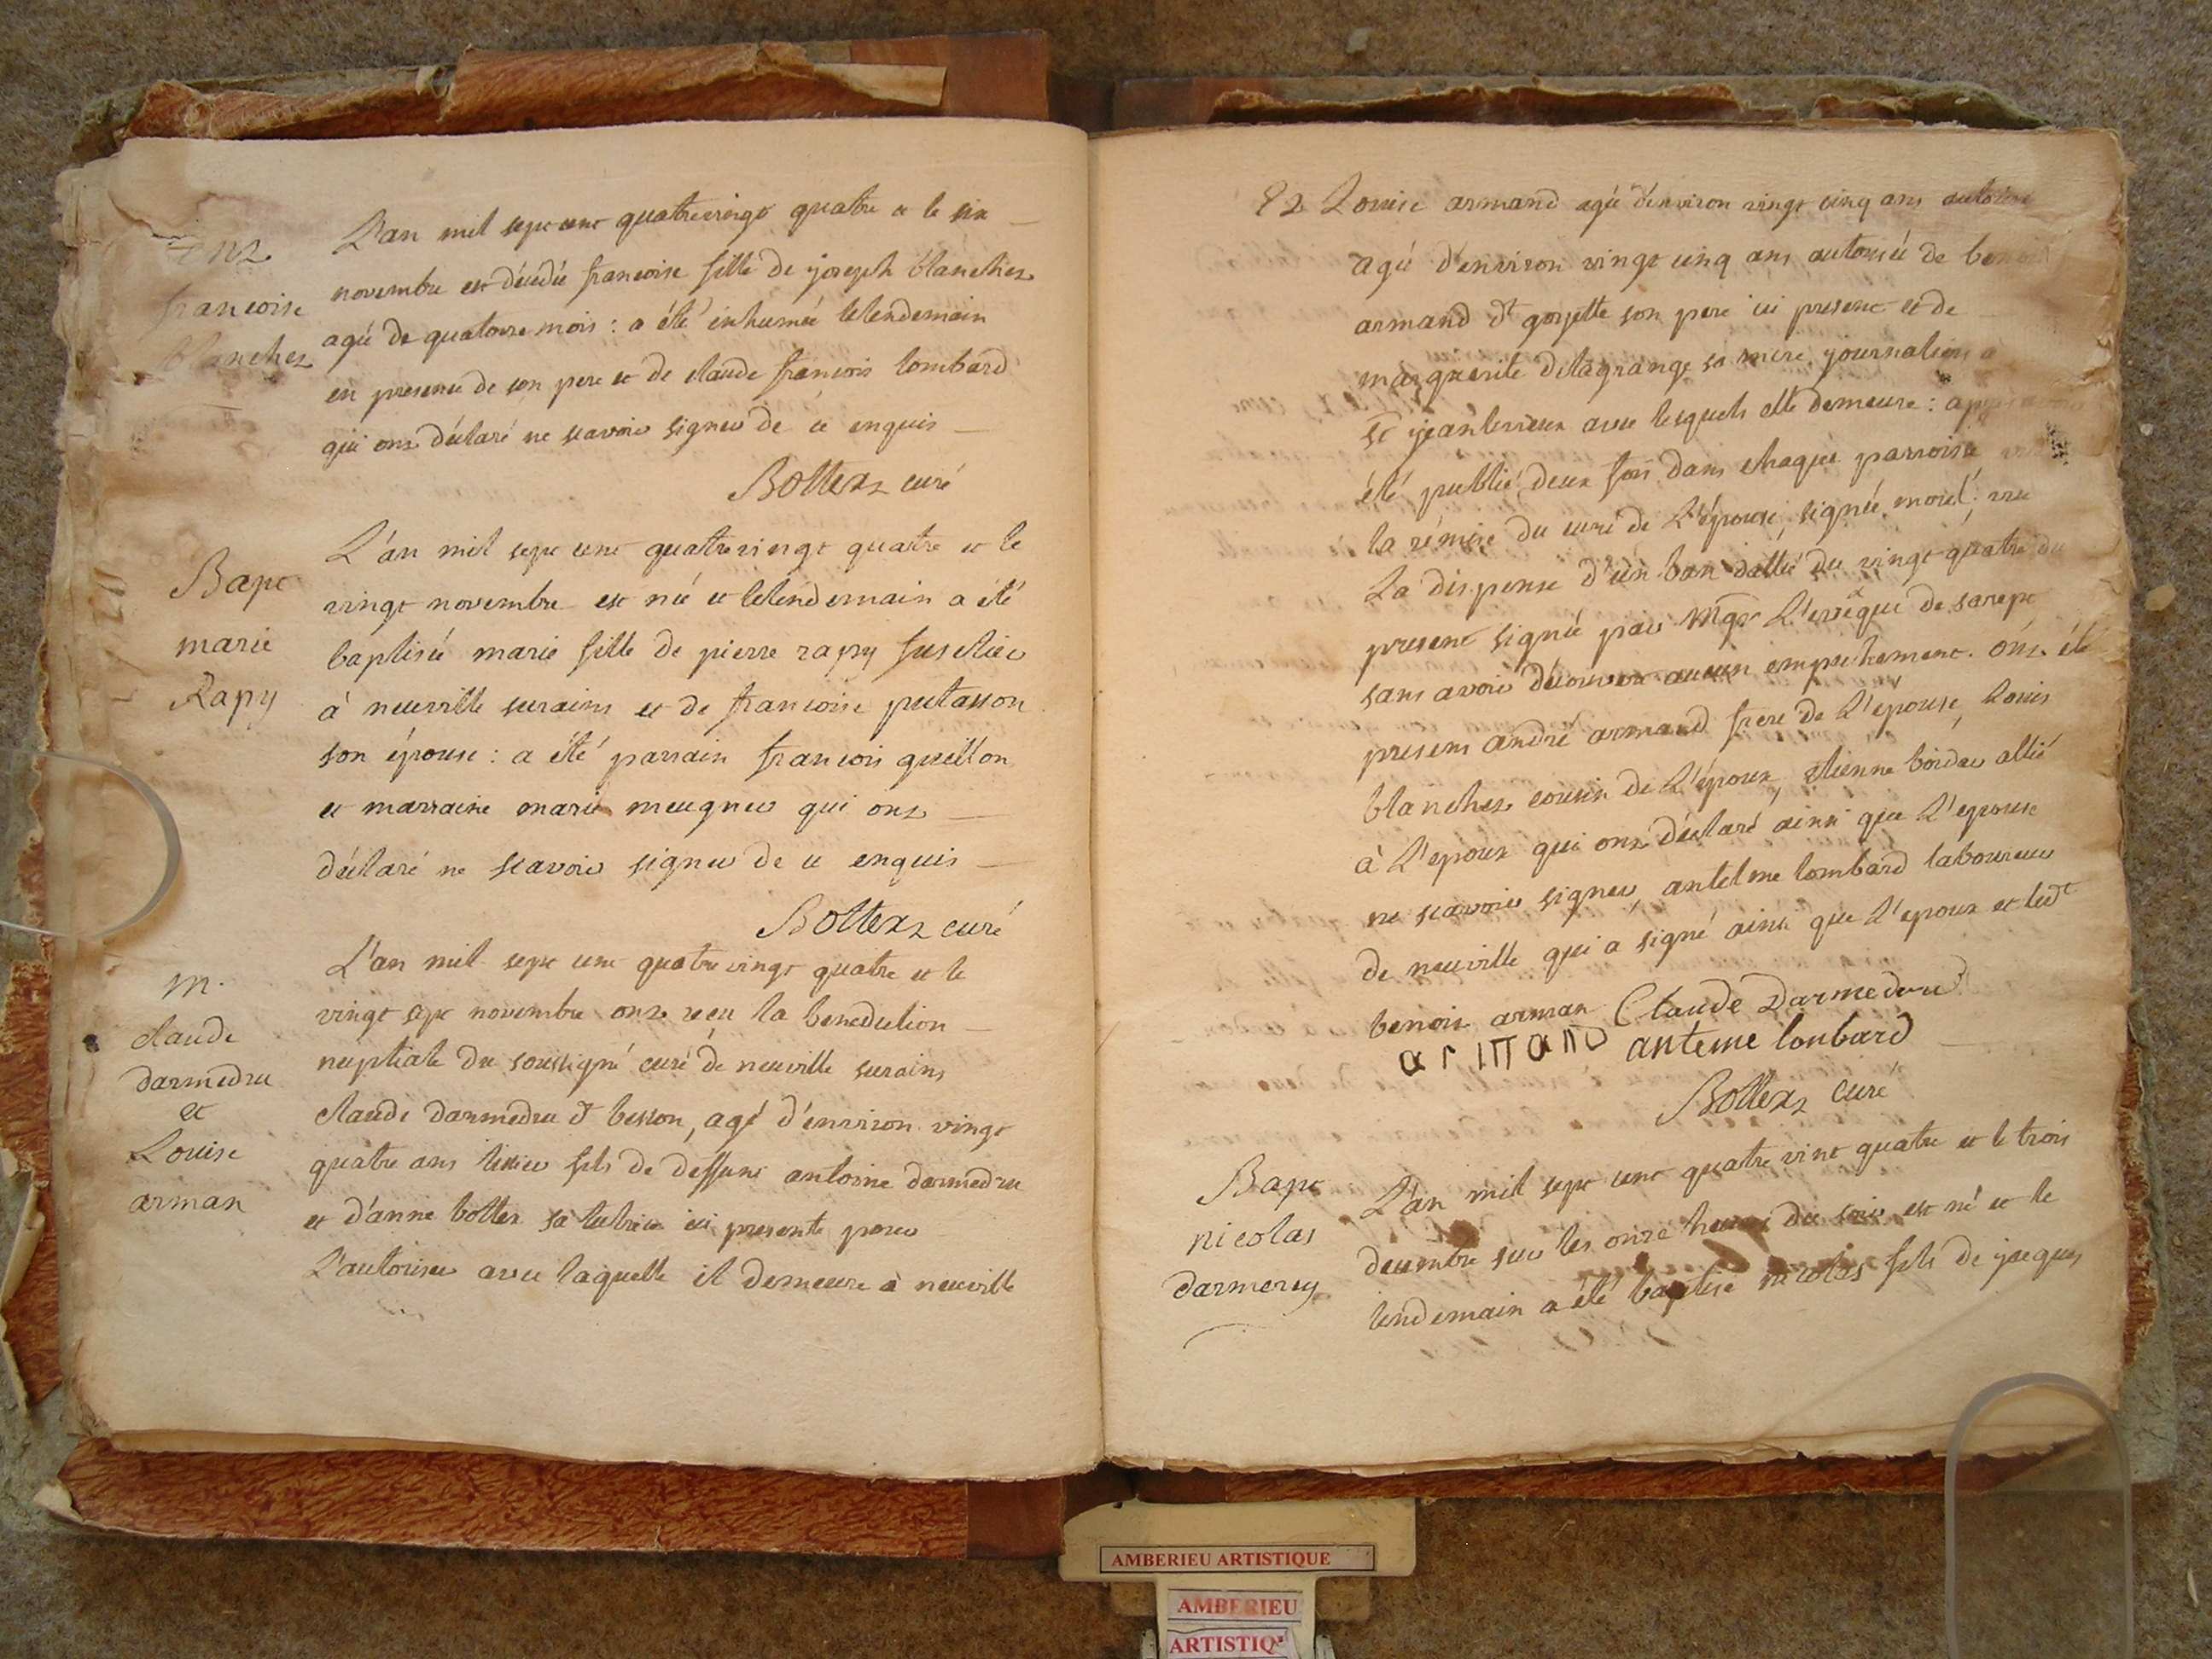 Enz
francoise
blanchez
L'an mil sept cent quatrevingt quatre et le six
novembre est décédée francoise fille de joseph blanchez
agée de quatorze mois : a été inhumée lelendemain
en presence de son pere et de claude françois lombard
qui onz déclaré ne scavoir signer de ce enquis
Bottexz curé
Bapt
marie
Rapy
L'an mil sept cent quatrevingt quatre et le
vingt novembre est née et lelendemain a été
baptisée marie fille de pierre rapy
à neuville surains et de francoise putasson
son épouse : a été parrain françois guillon
et marraine marie meugner qui onz
déclaré ne scavoir signer de ce enquis
Bottexz curé
M.
claude
darmedru
et
Louise
arman
L'an mil sept cent quatrevingt quatre et le
vingt sept novembre onz reçu la benediction
nuptiale du soussigné curé de neuville surains
claude darmedru dt besson, agé d'environ vingt
quatre ans tissier fils de deffunt antoine darmedru
et d'anne bottex sa tutrice ici presente pour
L'autoriser avec laquelle il demeure à neuville
et Louise armand agée d'environ vingt cinq ans autorisée
agée d'environ vingt cinq ans autorisée de benoit
armand dt gojette son pere ici present et de
marguerite delagrange sa mere journaliers à
St jeanlevieux avec lesquels elle demeure :
été publié deux fois dans chaque parroisse vu
la rémise du curé de L'épouse, signée morel; vu
La dispense d'un ban dattée du vingt quatre du
present signée par Mgr L'evêque de sarept
sans avoir découvert aucun empechement. onz été
presens andré armand frere de L'épouse, Louis
blanchez cousin de L'époux, etienne boidar allié
à L'epoux qui onz déclaré ainsi que L'epouse
ne scavoir signer, antelme lombard laboureur
de neuville qui a signé ainsi que L'epoux et ledt
benoit arman Claude Darmedru
armand anteme lonbard
Bottexz curé
Bapt
nicolas
darmerey
L'an mil sept cent quatre vint quatre et le trois
decembre sur les onze heures du soir est né et le
lendemain a été baptisé nicolas fils de jacques
AMBERIEU ARTISTIQUE
AMBERIEU
ARTISTIQ